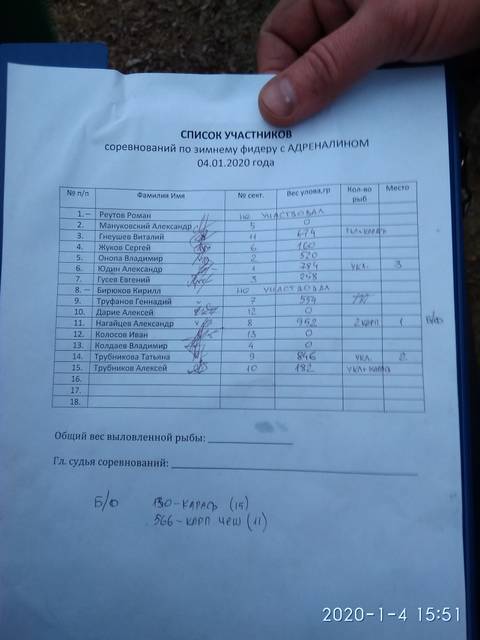 СПИСОК УЧАСТНИКОВ
соревнований по зимнему фидеру с АДРЕНАЛИНОМ
04.01.2020 года
№ п/п Фамилия Имя № сект. Вес улова,гр Кол-во рыб Место
1. – Реутов Роман НЕ УЧАСТВОВАЛ
2. Мануковский Александр 5 0
3. Гнеушев Виталий 11
4. Жуков Сергей 6 160
5. Онопа Владимир 2 520
6. Юдин Александр 1 784 УКЛ. 3
7. Гусев Евгений 3 248
8. – Бирюков Кирилл НЕ УЧАСТВОВАЛ
9. Труфанов Геннадий 7 554
10. Дарие Алексей 12 0
11. Нагайцев Александр 8 952 2 КАРП 1 Б/Ф
12. Колосов Иван 13 0
13. Колдаев Владимир 4 0
14. Трубникова Татьяна 9 846 УКЛ. 2
15. Трубников Алексей 10 182 УКЛ+КАРАСЬ
16.
17.
18.
Общий вес выловленной рыбы:
Гл. судья соревнований:
Б/Ф 130-КАРАСЬ (15)
566-КАРП ЧЕШ (11)
2020-1-4 15:51